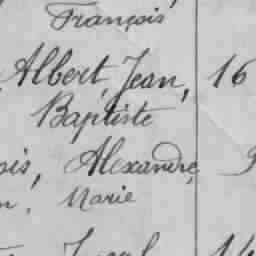 François
Albert, Jean, 16
Baptiste
ois, Alexandre,
n, Marie